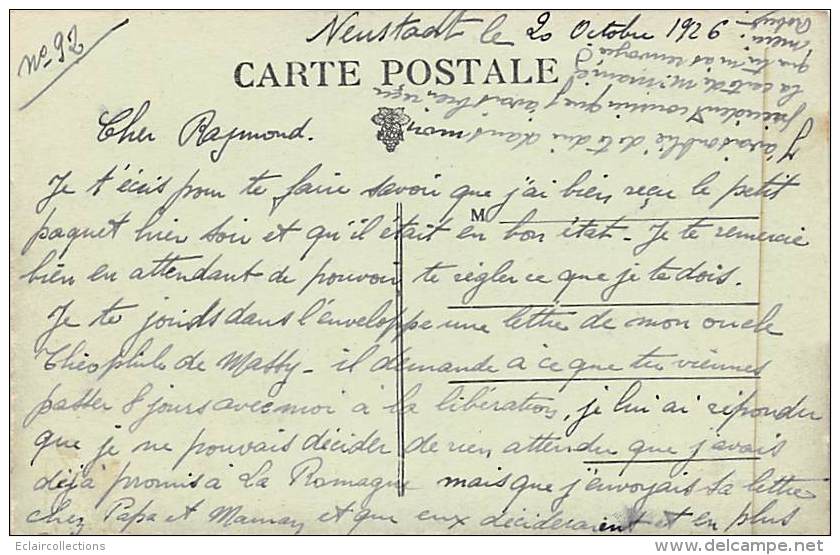 Neustadt le 20 Octobre 1926
no 92
CARTE POSTALE
J'avais oublié de te dire dans mon
précédent courrier que j'avais bien reçu
la carte de
que tu m'as renvoyée
merci
Cher Raymond.
Je t'écis pour te faire savoir que j'ai bien reçu le petit
M
paquet hier soir et qu'il était en bon état - Je te remercie
bien en attendant de pouvoir te régler ce que je te dois.
Je te joids dans l'enveloppe une lettre de mon oncle
Théophile de Massy - il demande à ce que tu viennes
passer 8 jours avec moi à la libération, je lui ai répondu
que je ne pouvais décider de rien attendu que j'avais
déjà promis à La Romagne mais que j'envoyais sa lettre
chez Papa et Maman et que eux décideraient et en plus
Eclaircollections
www.delcampe.net